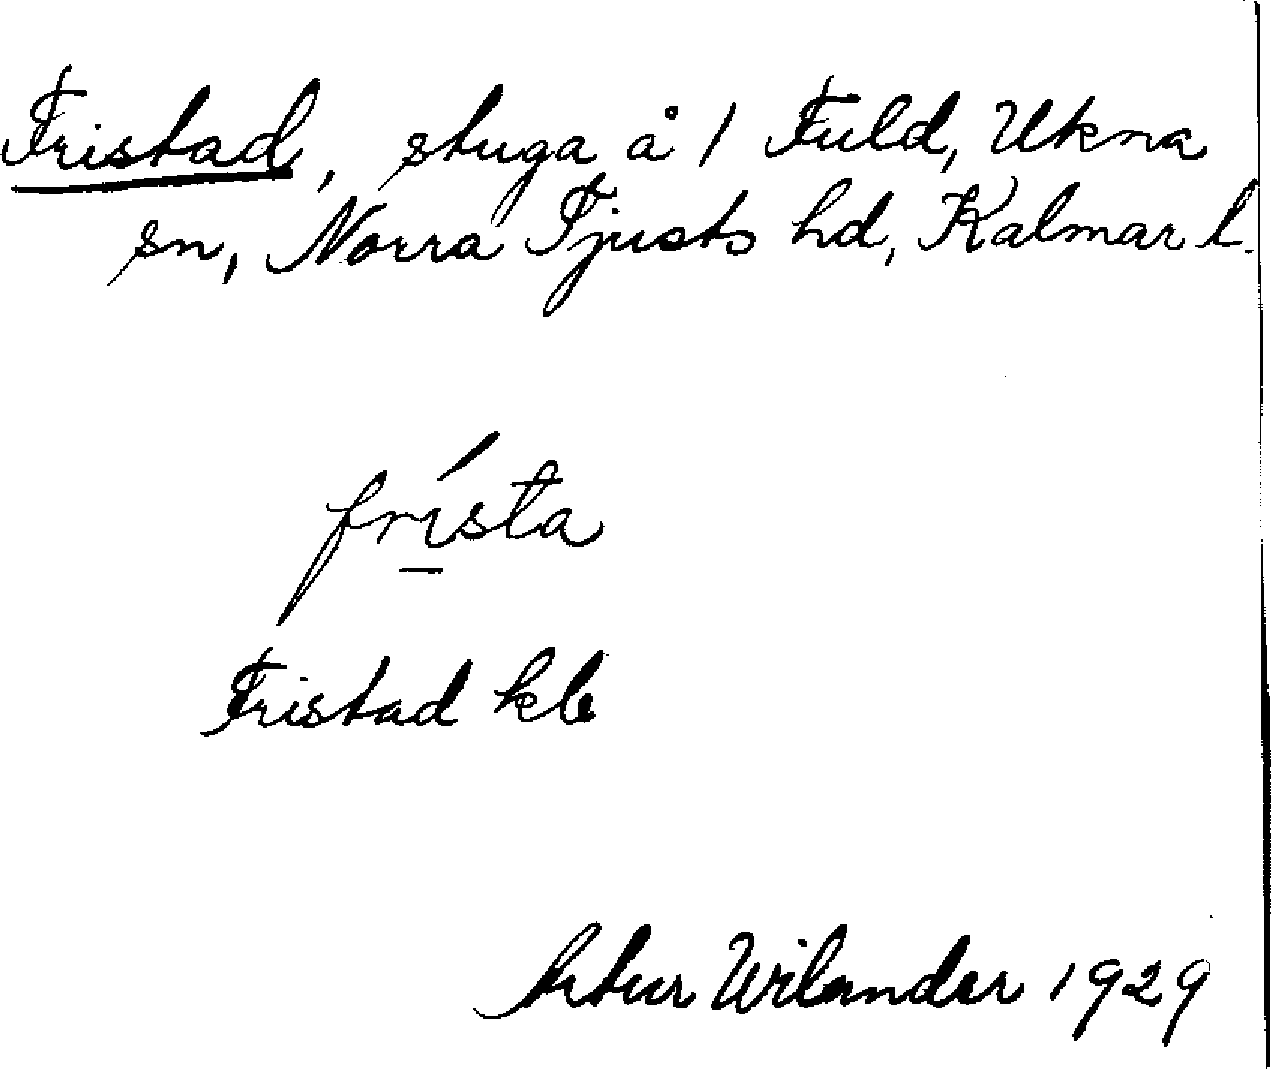 Fristad, stuga å 1 Fuld, Ukna
sn, Norra Tjusts hd, Kalmar l.
frísta
Fristad klb
Artur Wilander 1929